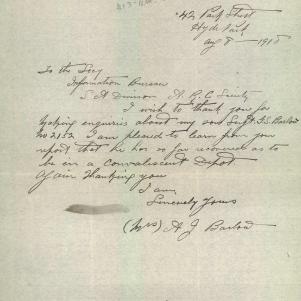 42 Park Street
Hyde Park
Aug 8 - 1918
To the Secy
Information Bureau
S A Division A. R. C Society
I wish to thank you for
making enquiries about my son Sergt. F.S. Barlow
No 2152 I am pleased to learn from your
report that he has so far recovered as to
be in a Convalescent Depot
Again thanking you
I am
Sincerely Yours
(Mrs) A J Barlow